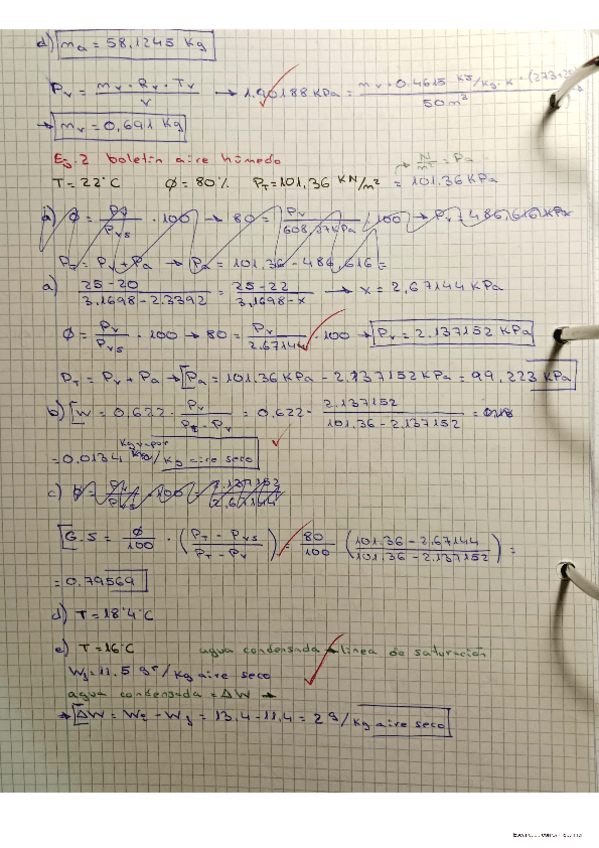 d) ma = 58,1245 Kg
Pv = mv · Rv · Tv / V → 1.90188 KPa = mv · 0.4615 KJ/Kg·K · (273+20) / 50m³
→ mv = 0,691 Kg
Ej.2 boletín aire húmedo
N/m² = Pa
T = 22°C ϕ = 80% PT = 101,36 KN/m² = 101.36 KPa
a) ϕ = Pv / Pvs · 100 → 80 = Pv / 608,27KPa · 100 → Pv = 486,616 KPa
PT = Pv + Pa → Pa = 101.36 - 486,616 =
a) 25-20 / 3,1698-2.3392 = 25-22 / 3,1698-x → x = 2,67144 KPa
ϕ = Pv / Pvs · 100 → 80 = Pv / 2.67144 · 100 → Pv = 2.137152 KPa
PT = Pv + Pa → Pa = 101.36 KPa - 2.137152 KPa = 99,223 KPa
b) W = 0.622 · Pv / Pt - Pv = 0.622 · 2.137152 / 101.36 - 2.137152 =
= 0.0134 Kg vapor / Kg aire seco
c) ϕ = Pv / Pvs · 100 = 2.137152 / 2.67144
G.S = ϕ / 100 · (PT - Pvs / PT - Pv) = 80 / 100 (101.36 - 2,67144 / 101.36 - 2.137152) =
= 0.79569
d) T = 18'4°C
e) T = 16°C agua condensada → línea de saturación
W3 = 11.5 gr/Kg aire seco
agua condensada = ΔW →
→ ΔW = W2 - W3 = 13,4 - 11,4 = 2 g/Kg aire seco